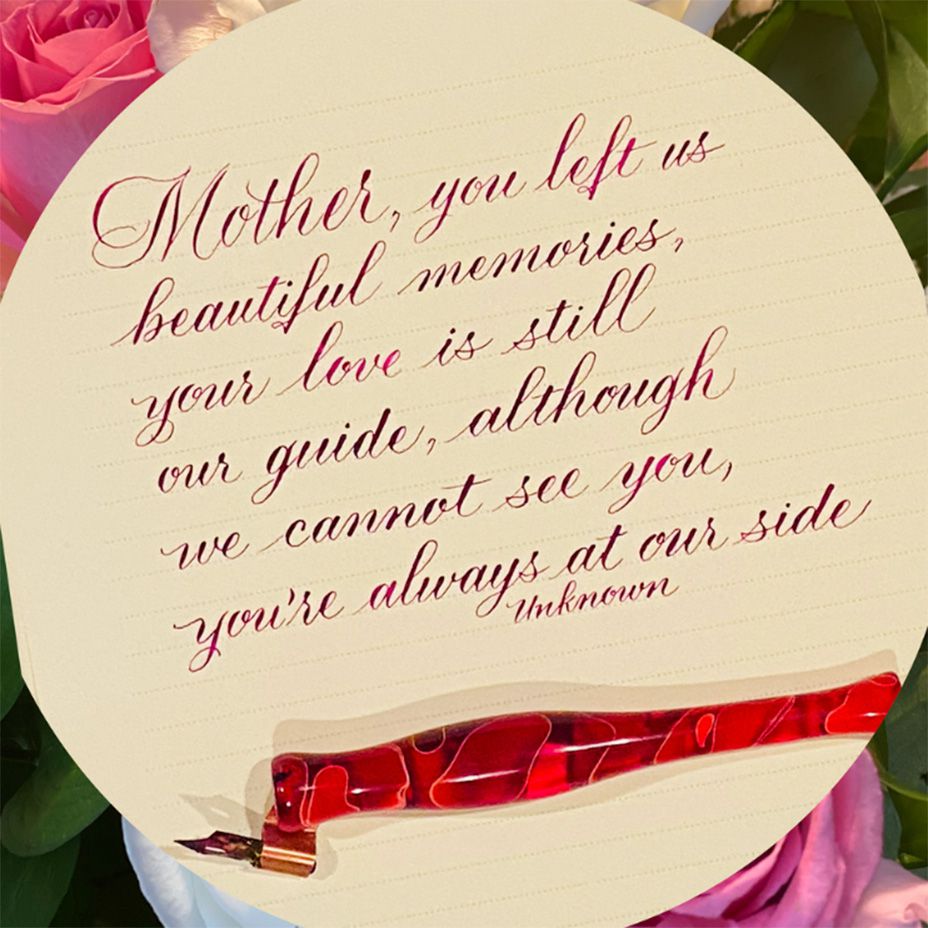 Mother, you left us
beautiful memories,
your love is still
our guide, although
we cannot see you,
you're always at our side
Unknown